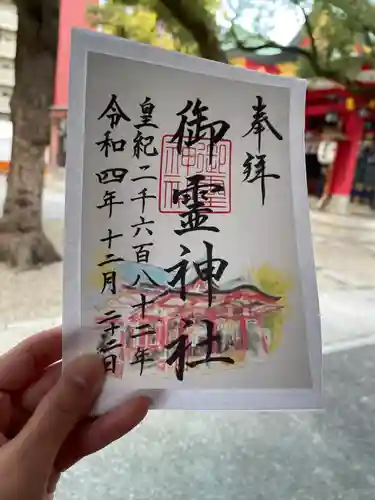 奉拝
御霊神社
皇紀二千六百八十二年
令和四年十二月二十二日